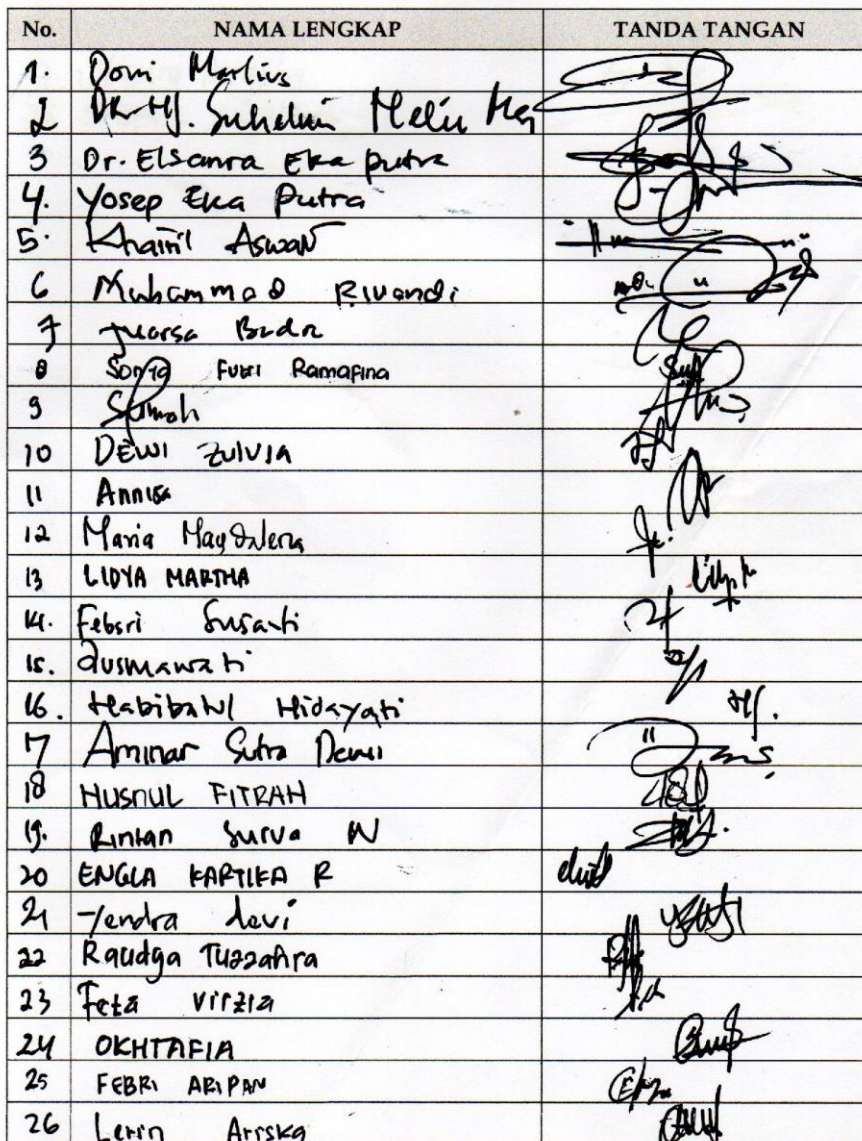 No. NAMA LENGKAP TANDA TANGAN
1. Doni Marlius
2 DR. Hj.
3 Dr. Elsanra Eka Putra
4. Yosep Eka Putra
5. Khairil Aswan
6 Muhammad Rivandi
7 Juarsa Badri
8 Ramafina
9
10 DEWI ZULVIA
11 Annisa
12 Maria Magdalena
13 LIDYA MARTHA
14. Febsri Susanti
15. Yusmawati
16. Habibatul Hidayati
17 Aminar Sutra Dewi
18 HUSNUL FITRAH
19. Rintan Surya N
20 ENGLA KARTIKA R
21 Yendra Devi
22 Raudya Tuzzahra
23 Feta Virzia
24 OKHTAFIA
25 FEBRI ARIPAN
26 Lerin Arriska